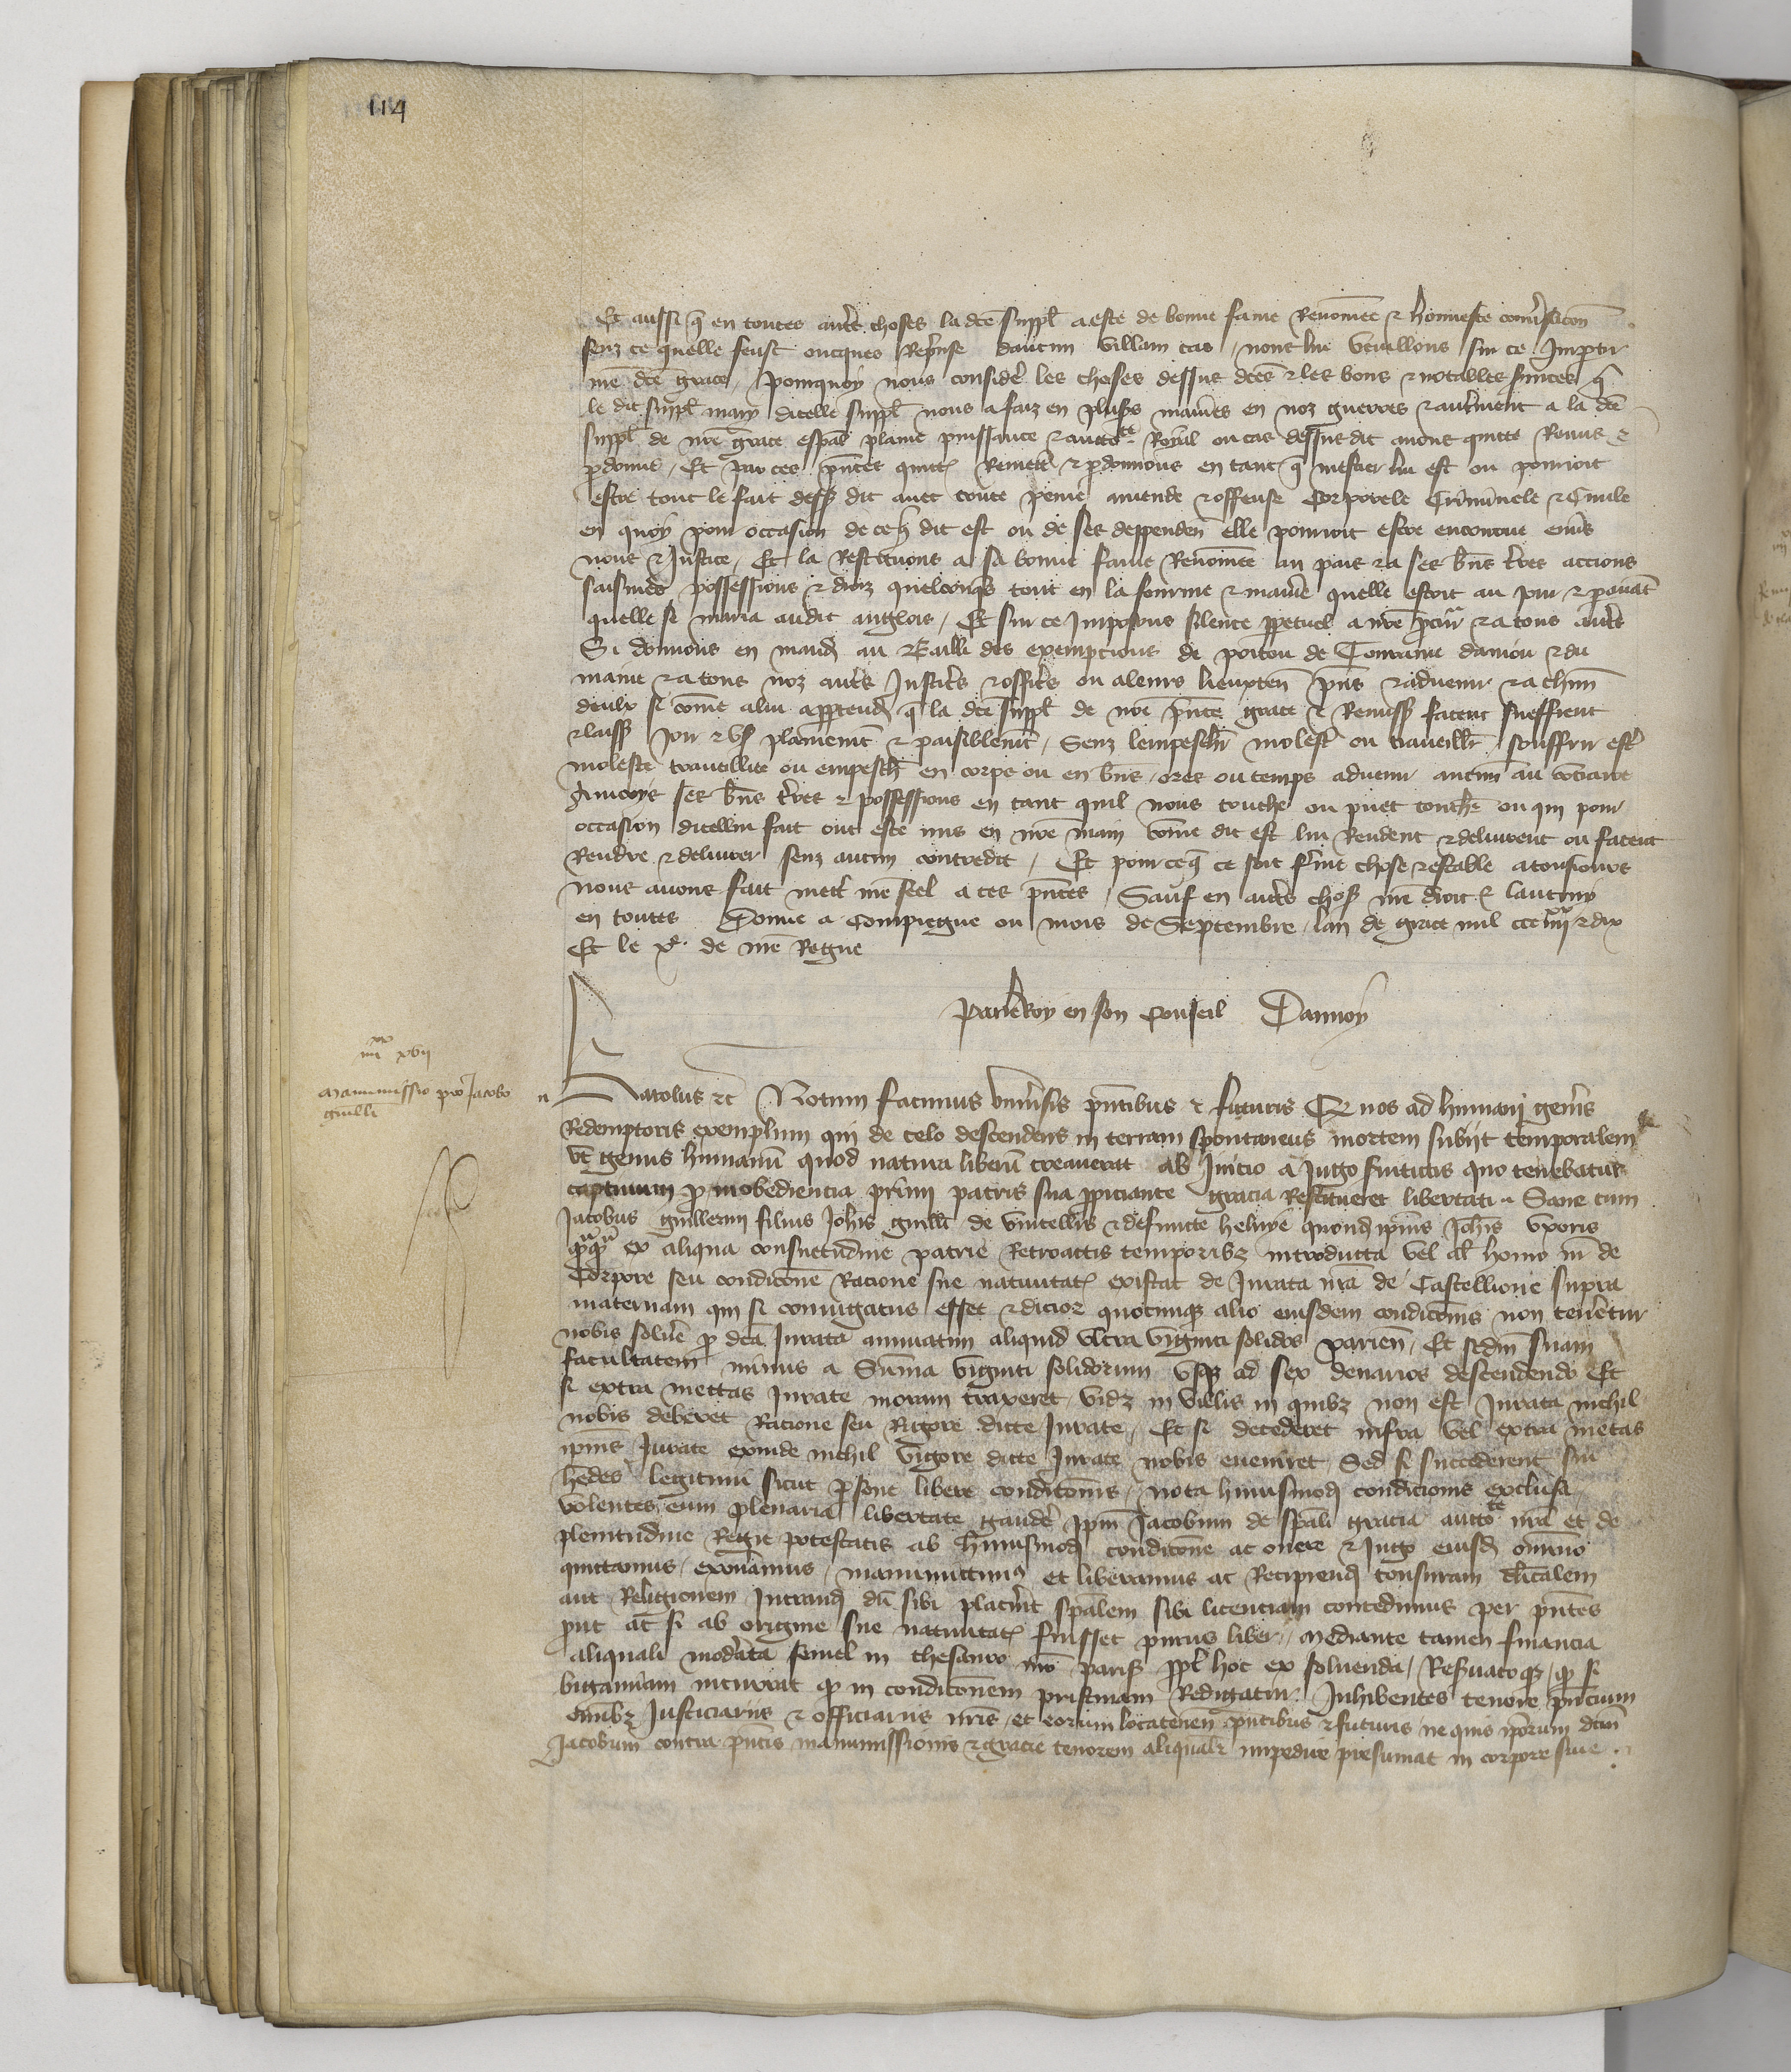 114
Et aussi q̃ en toutes autr̃s choses la dc̃e suppl̃ a este de bonne fame Renom̃ee & honneste conv̾sac̃on
senz ce quelle feust oncques Rep̃nse daucun villain cas / nous lui vueillons sur ce Impartir
nr̃e dc̃e grace / Pourquoy nous consider̃ les choses dessus dc̃es & les bons & notables s̃uices q̃
le dit suppl̃ mary dicelle suppl̃ nous a faiz en plus̃s manier̃s en noz guerres & autr̃ment a la dc̃e
suppl̃ de nr̃e grace esp̃al plaine puissance & auctc̃te Royal ou cas dessus dit auons quitte Remis &
p̱donne / Et par ces p̃ntes quitt̃ Remett̃ & p̱donnons en tant q̃ mestier lui est ou pourroit
estre tout le fait dess̃ dit auec toute peine amende & offense Corporele Criminele & Ciuile
en quoy pour occasion de ce q̃ dit est ou de ses deppenden̄ elle pourroit estre encourue enu̾s
nous & Justice / Et la Restituons a sa bonne fame Renom̃ee au pais & a ses bñs t̃res accions
saisines possessions & droiz quelconq̃s tout en la fourme & manier̃e quelle estoit au jour & p̱ auãt
quelle se maria audit anglois / Et sur ce Imposons silence p̱petuel a nr̃e p̃cur̃ & a tous autr̃s
Si donnons en mand̃ au Bailli des exempcions de poitou de Touraine daniou & du
maine & a tous noz autr̃s Justicr̃s & officr̃s ou a leurs lieuxten̄ p̃ns & aduenir & a chũn
deulx si com̃e a lui appartend̃ q̃ la dc̃e suppl̃ de nr̃e p̃nte grace & Remiss̃ facent sueffrent
& laiss̃ joir & us̃ plainem̃t & paisiblem̃t / Senz lempesch̃r molest̃ ou trauaill̃r / souffrir estr̃
molestee trauaillee ou empesch̃ en corps ou en bñs / ores ou temps aduenir aucun̄ au contraire
Aincoys ses bñs t̃res & possessions en tant quil nous touche ou puet touch̃r ou qui pour
occasion dicellui fait ont este mis en nr̃e main com̃e dit est lui Rendent & deliurent ou facent
Rendre & deliurer senz aucun contredit / Et pour ce q̃ ce soit ferme chose & estable a tousiours
nous auons fait mett̃r nr̃e seel a ces p̃ntes / Sauf en autr̃s chos̃ nr̃e droit & lautruy
en toutes Donne a Compiegne ou mois de Septembre / lan de grace mil ccc iiijxx & dix
Et le xe. de nr̃e Regne
Par le Roy en son Conseil Dannoy
iiijxx xvij
Manumissio pro Jacobo
guill̃i
Karolus &c Notum facimus vniu̾sis p̃ntibus & futuris Q̃ nos ad humani gen̾is
Redemptoris exemplum qui de celo descendens in terram spontaneus mortem subijt temporalem
vt genus humanũ quod natura liberũ creauerat ab Inicio a Jugo s̃uitutis quo tenebatur
captiuum p̱ inobedienciam primi patris sua p̱piciante gracia Restitueret libertati / Sane cum
Jacobus guillermi filius Joh̃is guill̃i de vincellis & defuncte heluye quond̃ ip̃ius Joh̃is vxoris
q̃mq̃m ex aliqua consuetudine patrie Retroactis temporibz introducta vel al̃ homo nr̃ de
Corpore seu condic̃one Racione sue natiuitat̃ existat de Jurata nr̃a de Castellione supra
maternam qui si coniugatus esset & dicior quocumqz alio eiusdem condic̃onis non teneretur
nobis soluer̃e p̱ dc̃a Jurata annuatim aliquid vltra viginti solidos parien̄ / Et sc̃dm suam
facultatem minus a Sum̃a viginti solidorum vsqz ad sex denarios descendendo Et
si extra mettas Jurate moram traxeret / videlz in villis in quibz non est Jurata nichil
nobis deberet Racione seu Rigore dicte Jurate / Et si decederet infra vel extra metas
ip̃ius Jurate exinde nichil vigore dicte Jurate nobis eueniret / Sed si succederent sui
her̃des legitimi sicut p̱sone libere condic̃onis / nota huiusmod̃ condicionis exclusa
volentes eum plenaria libertate gauder̃e ip̃m Jacobum de sp̃ali gracia auctc̃te nr̃a et de
plenitudine Regie potestatis ab huiusmod̃ condic̃one ac onere & Jugo eiusd̃ om̃ino
quittamus / exon̾amus / manumittimus et liberamus ac Recipiend̃ tonsuram cl̃icalem
aut Religionem Intrand̃ dũ sibi placu̾it sp̃alem sibi licenciam concedimus per p̃ntes
p̱ut ac̃ si ab origine sue natiuitat̃ fuisset purus liber / mediante tamen financia
aliquali mod̾ata semel in thesauro nr̃o paris̃ p̱pt̃ hoc ex soluenda / Res̃uatoqz / q̱ si
bigamiam incurrat q̱ in condic̃onem pristinam Redigatur. Inhibentes tenore p̃ncium
om̃ibz Justiciariis & officiariis nr̃is / et eorum locatenen̄ p̃ntibus & futuris ne quis ip̃orum dc̃m
Jacobum contra p̃ntis manumissionis & gracie tenorem aliqual̃r impedire presumat in corpore siue